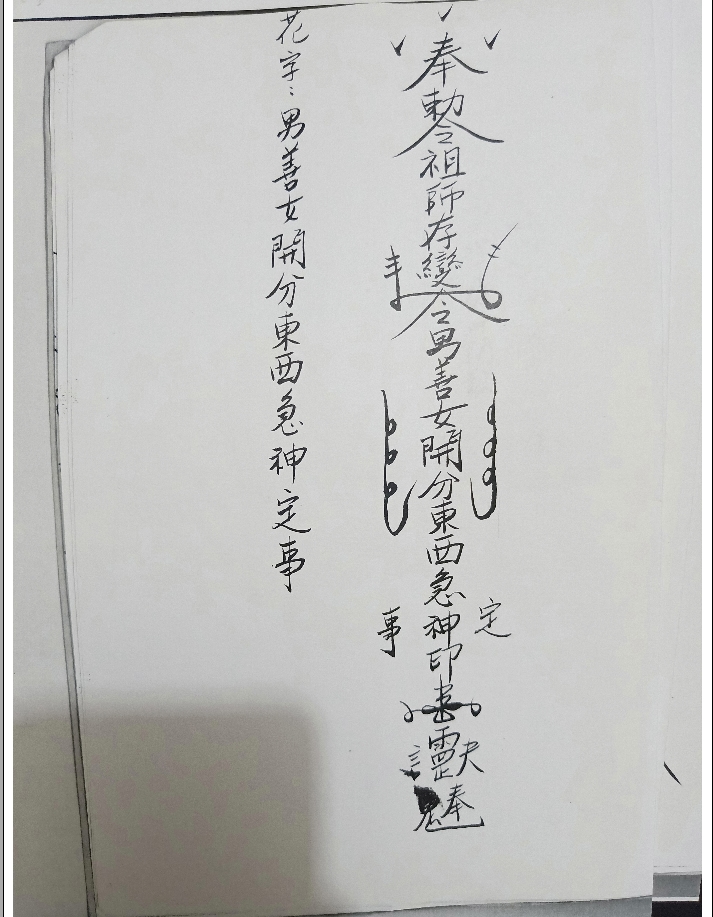 奉勅令祖師存變令男善女開分東西急神印
定
事
花字：男善女開分東西急神定事